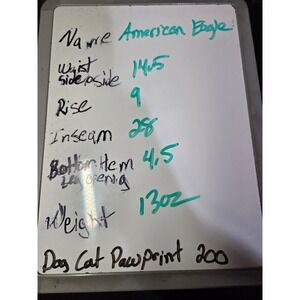 Name American Eagle
Waist 14.5
side2side
Rise 9
Inseam 28
Bottom Hem 4.5
Leg opening
Weight 13oz
Dog Cat Pawprint 200